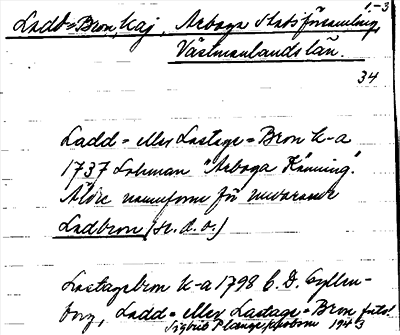 1,-3
Ladd=Bron, kaj, Arboga Stadsförsamling,
Västmanlands län.
34
Ladd= eller Lastage=Bron k-a
1737 Lohman "Arboga Känning".
Äldre namnform för nuvarande
Ladbron (se. d. o.)
Lastagebron k-a 1798 C. G. Gyllen-
borg, Ladd= eller Lastage=Bron
Sigbrit Plænge Jacobson 1943